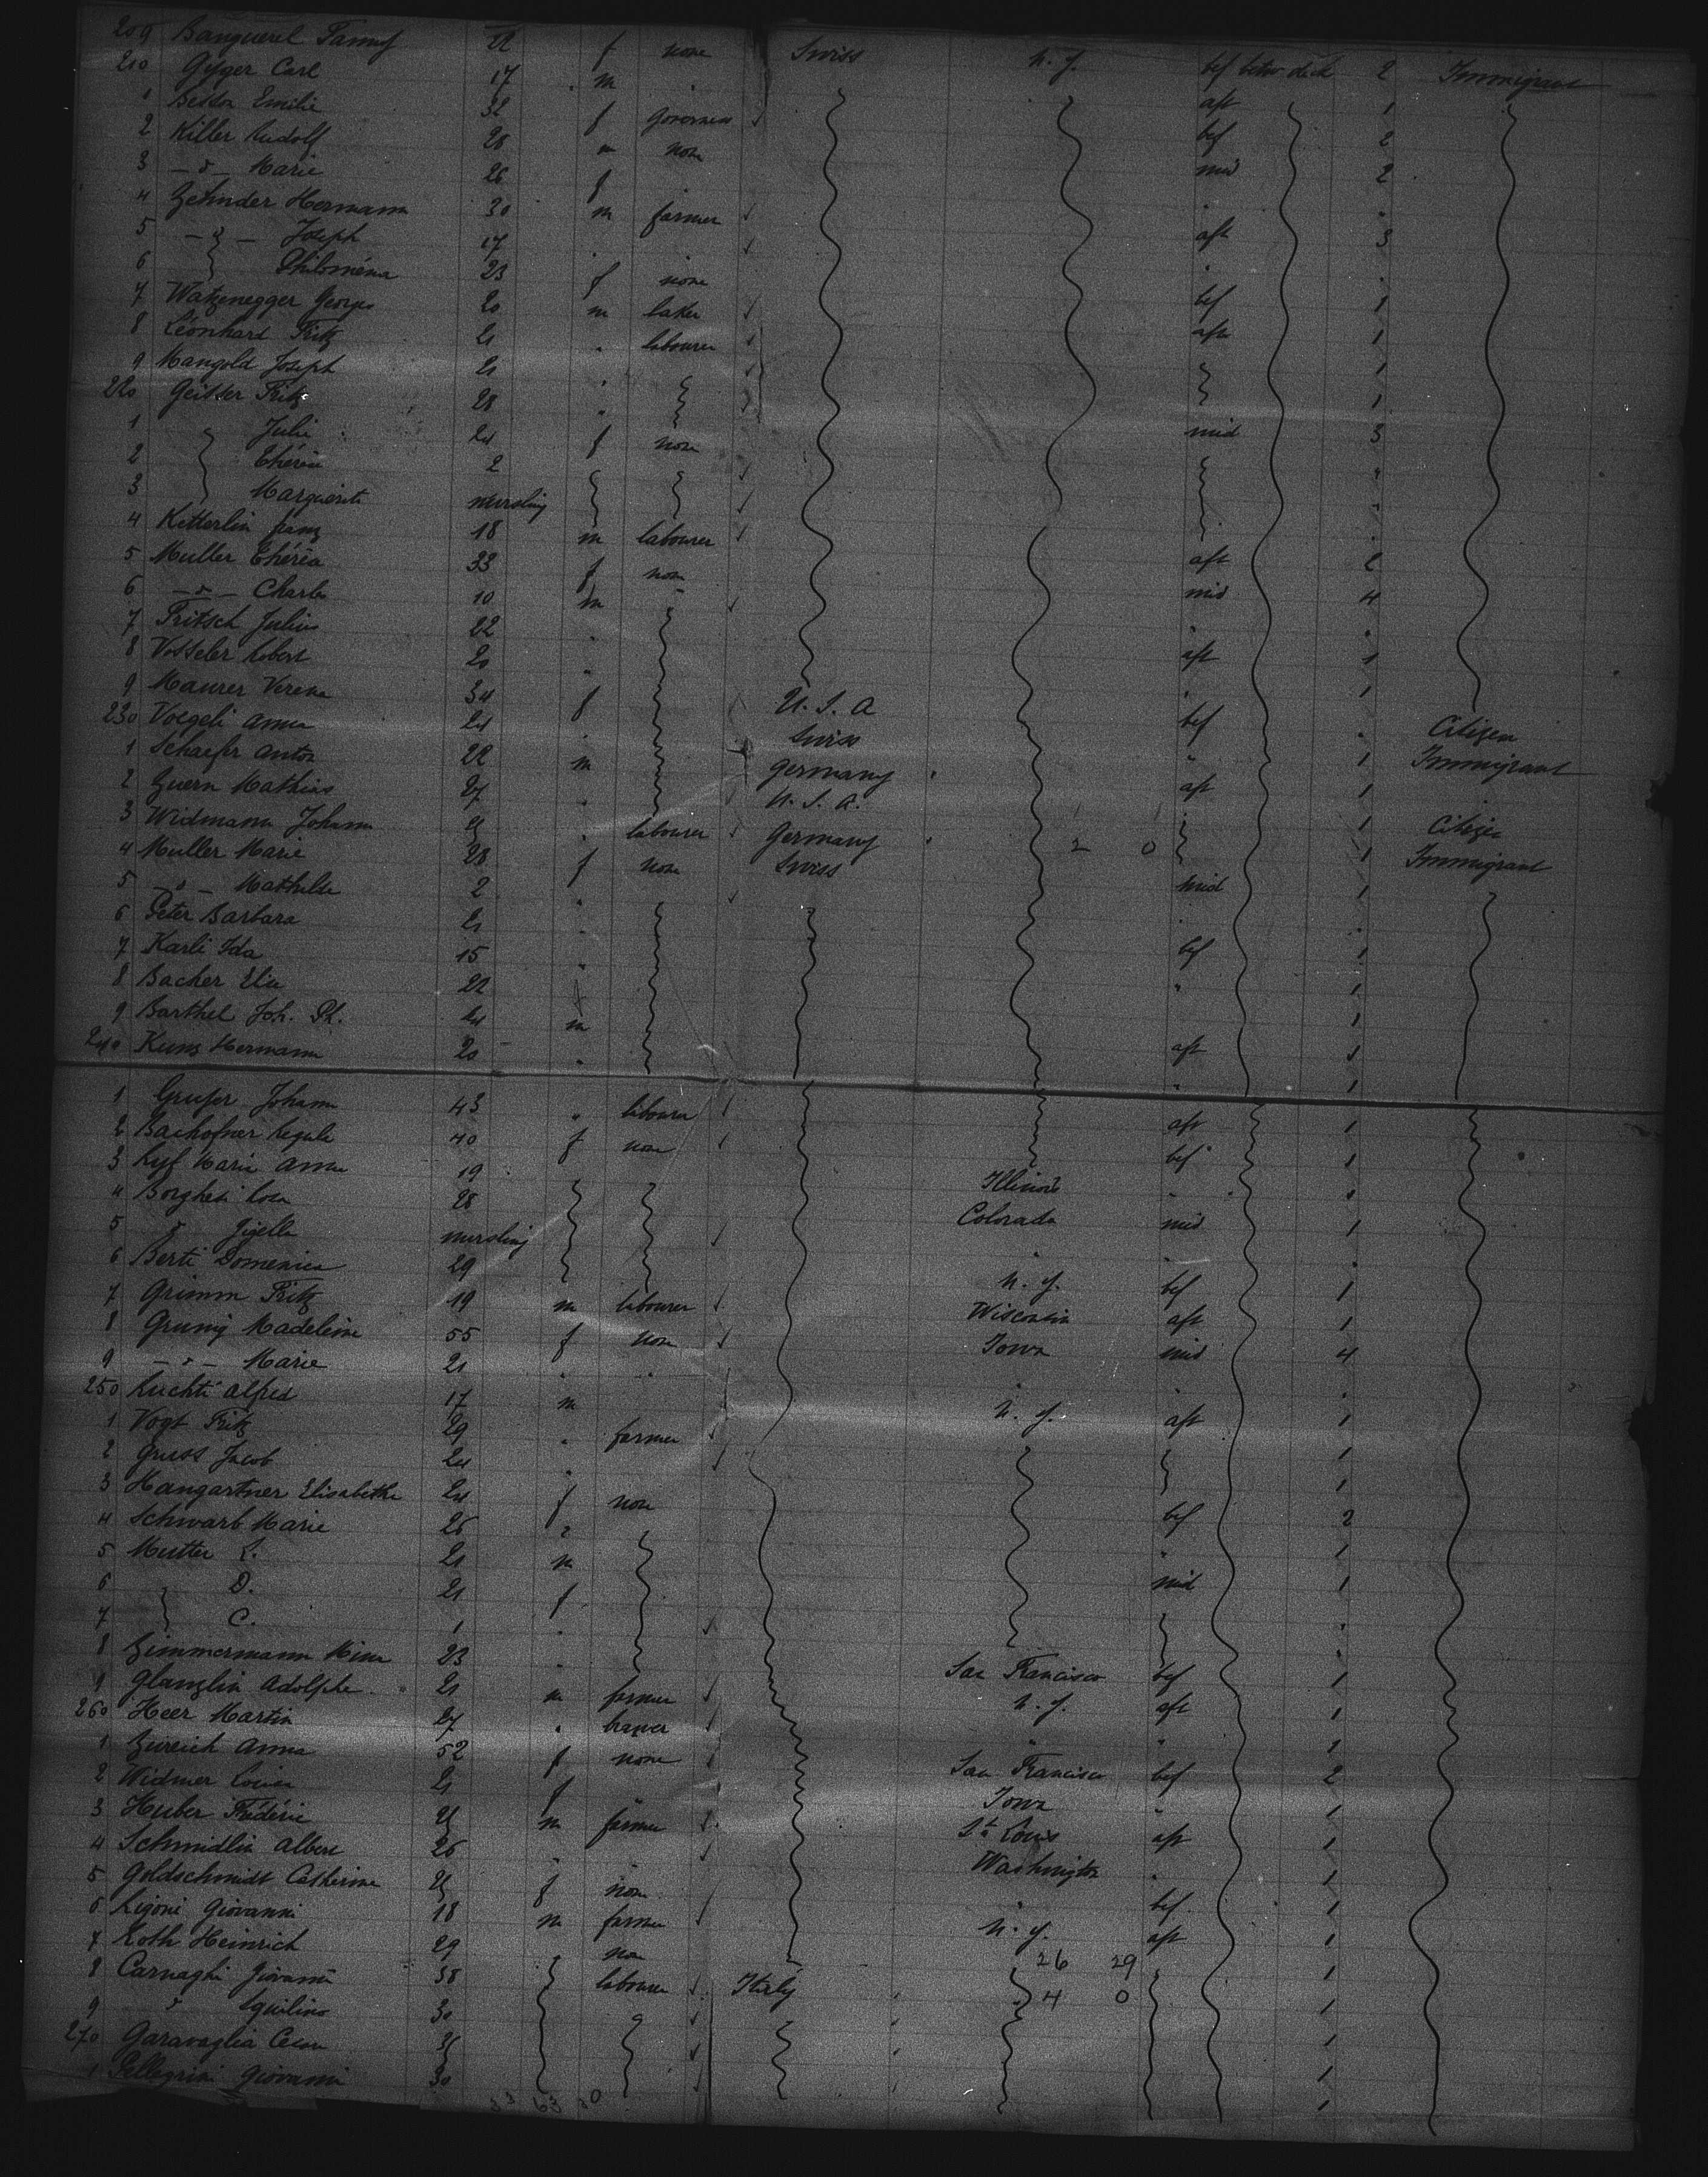 209 Banguerel Fanny 22 f none Swiss N. Y. bef betw deck 2 Immigrant
210 Gyger Carl 17 m " aft 1
1 Bessor Emilie 32 f governess bef 2
2 Killer Rudolf 28 m none mid 2
3 -"- Marie 26 f " "
4 Zehnder Hermann 30 m farmer aft 3
5 -"- Joseph 17 " " " "
6 Philoména 23 f none bef 1
7 Watzenegger Georges 20 m baker aft 1
8 Léonhard Fritz 21 " labourer 1
9 Mangold Joseph 21 " 1
220 Geisser Fritz 28 " mid 3
1 Julie 24 f none "
2 Thérèse 2 "
3 Marguerite nursling "
4 Ketterlin franz 18 m labourer aft 2
5 Muller Théréa 33 f none mid 4
6 -"- Charles 10 m " " "
7 Fritsch Julius 22 " aft 1
8 Vosseler Robert 20 " " 1
9 Maurer Verena 34 f U. S. A bef " Citizen
230 Voegeli Anna 24 " Swiss " 1 Immigrant
1 Schaefer Anton 22 m Germany aft 1 "
2 Guern Mathias 27 " U. S. A. 1 Citizen
3 Widmann Johann " labourer Germany 2 0 1 Immigrant
4 Muller Marie 28 f none Swiss mid 1
5 -"- Mathilde 2 " "
6 Peter Barbara 21 " bef 1
7 Karli Ida 15 " " 1
8 Bacher Elise 22 f 1
9 Barthel Joh. Ph. 24 m aft 1
240 Kunz Hermann 20 " " 1
1 Grufer Johann 43 " labourer aft 1
2 Bachofner Regula 40 f none bef 1
3 Ryf Marie Anna 19 Illinois " 1
4 Borghesi Rosa 28 Colorado mid 1
5 " Gigella nursling " " "
6 Berti Domenica 29 N. Y. bef 1
7 Grimm Fritz 19 m labourer Wisconsin aft 1
8 Grunig Madeleine 55 f none Iowa mid 4
9 -"- Marie 21 " " " " "
250 Luchti Alfred 17 m N. Y. aft 1
1 Vogt Fritz 29 " farmer 1
2 Gruss Jacob 24 " 1
3 Hangartner Elisabetha 24 f none bef 2
4 Schwarb Marie 26 " " 1
5 Mutter L. 21 m mid 1
6 D. 21 f
7 C. 1 " "
8 Zimmermann Mina 23 " San Francisco bef 1
9 Glanzlin Adolphe 21 m farmer N. Y. aft 1
260 Heer Martin 27 " brewer " " 1
1 Zureich Anna 52 f none San Francisco bef 2
2 Widmer Louisa 21 f Iowa " 1
3 Huber Frédéric m farmer St. Louis aft 1
4 Schmidlin Albert 26 " " Washington " 1
5 Goldschmidt Catherine f none " bef 1
6 Rigoni Giovanni 18 m farmer N. Y. aft 1
7 Roth Heinrich 29 none 26 29 1
8 Carnaghi Giovanni 38 labourer Italy 4 0 1
9 " Aquilino 30 1
270 Garavaglia 1
1 Pellegrini Giovanni 30 1